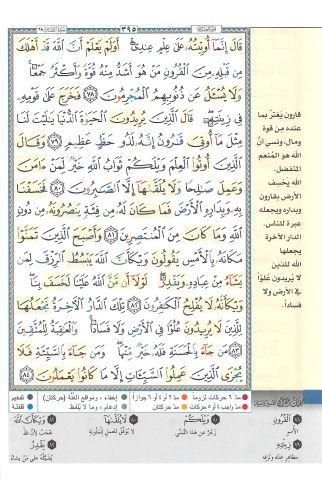 ٣٩٥
قَالَ إِنَّمَآ أُوتِيتُهُۥ عَلَىٰ عِلْمٍ عِندِىٓ ۚ أَوَلَمْ يَعْلَمْ أَنَّ ٱللَّهَ قَدْ أَهْلَكَ
مِن قَبْلِهِۦ مِنَ ٱلْقُرُونِ مَنْ هُوَ أَشَدُّ مِنْهُ قُوَّةً وَأَكْثَرُ جَمْعًا ۚ
وَلَا يُسْـَٔلُ عَن ذُنُوبِهِمُ ٱلْمُجْرِمُونَ ٧٨ فَخَرَجَ عَلَىٰ قَوْمِهِۦ
فِى زِينَتِهِۦ ۖ قَالَ ٱلَّذِينَ يُرِيدُونَ ٱلْحَيَوٰةَ ٱلدُّنْيَا يَـٰلَيْتَ لَنَا
مِثْلَ مَآ أُوتِىَ قَـٰرُونُ إِنَّهُۥ لَذُو حَظٍّ عَظِيمٍ ٧٩ وَقَالَ
ٱلَّذِينَ أُوتُوا۟ ٱلْعِلْمَ وَيْلَكُمْ ثَوَابُ ٱللَّهِ خَيْرٌ لِّمَنْ ءَامَنَ
وَعَمِلَ صَـٰلِحًا وَلَا يُلَقَّىٰهَآ إِلَّا ٱلصَّـٰبِرُونَ ٨٠ فَخَسَفْنَا
بِهِۦ وَبِدَارِهِ ٱلْأَرْضَ فَمَا كَانَ لَهُۥ مِن فِئَةٍ يَنصُرُونَهُۥ مِن دُونِ
ٱللَّهِ وَمَا كَانَ مِنَ ٱلْمُنتَصِرِينَ ٨١ وَأَصْبَحَ ٱلَّذِينَ تَمَنَّوْا۟
مَكَانَهُۥ بِٱلْأَمْسِ يَقُولُونَ وَيْكَأَنَّ ٱللَّهَ يَبْسُطُ ٱلرِّزْقَ لِمَن
يَشَآءُ مِنْ عِبَادِهِۦ وَيَقْدِرُ ۖ لَوْلَآ أَن مَّنَّ ٱللَّهُ عَلَيْنَا لَخَسَفَ بِنَا ۖ
وَيْكَأَنَّهُۥ لَا يُفْلِحُ ٱلْكَـٰفِرُونَ ٨٢ تِلْكَ ٱلدَّارُ ٱلْـَٔاخِرَةُ نَجْعَلُهَا
لِلَّذِينَ لَا يُرِيدُونَ عُلُوًّا فِى ٱلْأَرْضِ وَلَا فَسَادًا ۚ وَٱلْعَـٰقِبَةُ لِلْمُتَّقِينَ
٨٣ مَن جَآءَ بِٱلْحَسَنَةِ فَلَهُۥ خَيْرٌ مِّنْهَا ۖ وَمَن جَآءَ بِٱلسَّيِّئَةِ فَلَا
يُجْزَى ٱلَّذِينَ عَمِلُوا۟ ٱلسَّيِّـَٔاتِ إِلَّا مَا كَانُوا۟ يَعْمَلُونَ ٨٤
قارون يَغترّ بما
عنده مِن قوة
ومال، ونسي أنّ
الله هو المُنعم
المتفضل.
الله يُخسِف
الأرض بقارون
وبداره ويجعله
عبرة للناس.
الدار الآخرة
يجعلها
الله للذين
لا يُريدون عُلوّاً
في الأرض ولا
فساداً.
مدّ ٦ حركات لزوماً
مدّ ٢ أو ٤ أو ٦ جوازاً
إخفاء، ومواقع الغُنّة (حركتان)
تفخيم
مدّ واجب ٤ أو ٥ حركات
مدّ حركتان
إدغام، وما لا يُلفظ
قلقلة
٧٨ ٱلْقُرُونِ
الأمم
٧٩ زِينَتِهِۦ
مظاهر غِناه وتَرَفِه
٨٠ وَيْلَكُمْ
زَجْرٌ عن هذا التَّمنّي
٨٠ لَا يُلَقَّىٰهَآ
لا يُوَفَّق للعمل للمَثوبة
٨٢ وَيْكَأَنَّ ٱللَّهَ
٨٢ يَقْدِرُ
يُضَيِّقُه على مَن يشاء